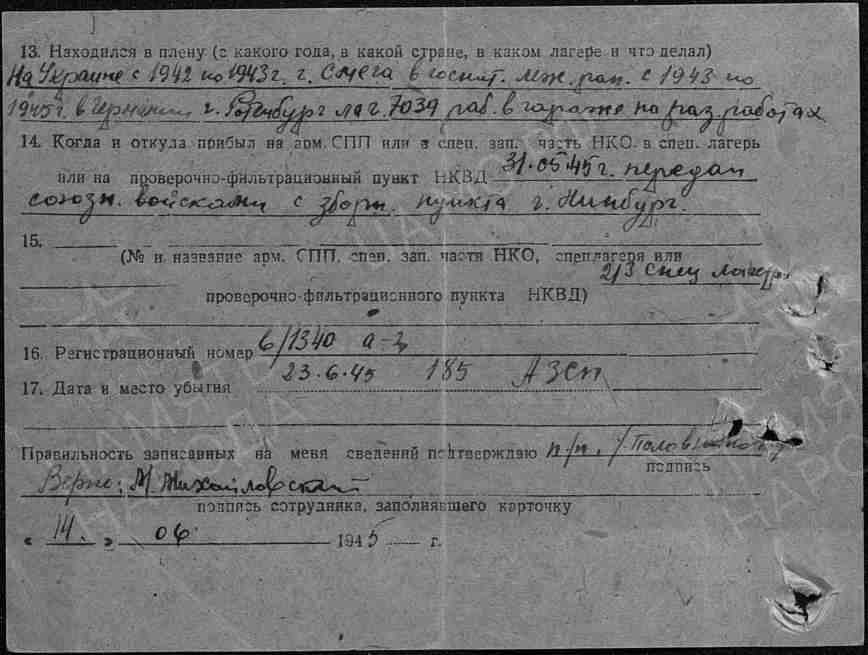 13. Находился в плену (с какого года, в какой стране, в каком лагере и что делал)
На Украине с 1942 по 1943г. г. в госпит. с 1943 по
1945г. в Германии г. лаг. 7039 раб. в гараже на раз. работах
14. Когда и откуда прибыл на арм. СПП или в спец. зап. часть НКО. в спец. лагерь
или на проверочно-фильтрационный пункт НКВД 31.05.45г. передан
союзн. войсками с зборн. пункта г. Нинбург.
15.
(№ и название арм. СПП. спец. зап. части НКО, спецлагеря или
213 спец лагерь
проверочно-фильтрационного пункта НКВД)
16. Регистрационный номер 6/1340
17. Дата и место убытия 23.6.45 185 АЗСП
Правильность записанных на меня сведений подтверждаю п/п.
подпись
Верно: Михайловский
подпись сотрудника, заполнявшего карточку
« 14. » 06 1945 г.
ПАМЯТЬ
НАРОДА